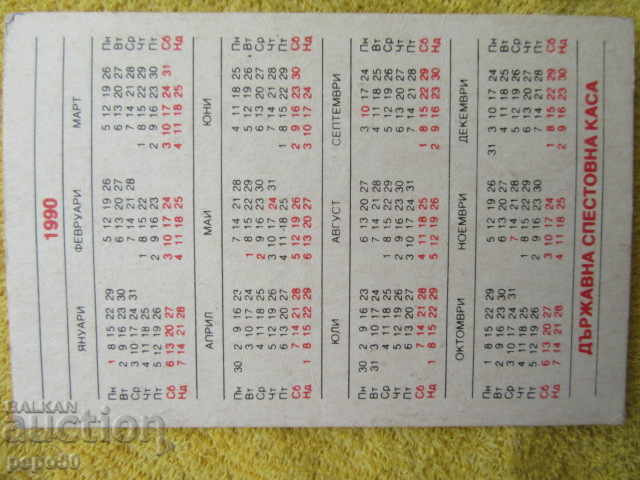 1990
ЯНУАРИ ФЕВРУАРИ МАРТ
Пн 1 8 15 22 29 5 12 19 26 5 12 19 26 Пн
Вт 2 9 16 23 30 6 13 20 27 6 13 20 27 Вт
Ср 3 10 17 24 31 7 14 21 28 7 14 21 28 Ср
Чт 4 11 18 25 1 8 15 22 1 8 15 22 29 Чт
Пт 5 12 19 26 2 9 16 23 2 9 16 23 30 Пт
Сб 6 13 20 27 3 10 17 24 3 10 17 24 31 Сб
Нд 7 14 21 28 4 11 18 25 4 11 18 25 Нд
АПРИЛ МАЙ ЮНИ
Пн 30 2 9 16 23 7 14 21 28 4 11 18 25 Пн
Вт 3 10 17 24 1 8 15 22 29 5 12 19 26 Вт
Ср 4 11 18 25 2 9 16 23 30 6 13 20 27 Ср
Чт 5 12 19 26 3 10 17 24 31 7 14 21 28 Чт
Пт 6 13 20 27 4 11 18 25 1 8 15 22 29 Пт
Сб 7 14 21 28 5 12 19 26 2 9 16 23 30 Сб
Нд 1 8 15 22 29 6 13 20 27 3 10 17 24 Нд
ЮЛИ АВГУСТ СЕПТЕМВРИ
Пн 30 2 9 16 23 6 13 20 27 3 10 17 24 Пн
Вт 31 3 10 17 24 7 14 21 28 4 11 18 25 Вт
Ср 4 11 18 25 1 8 15 22 29 5 12 19 26 Ср
Чт 5 12 19 26 2 9 16 23 30 6 13 20 27 Чт
Пт 6 13 20 27 3 10 17 24 31 7 14 21 28 Пт
Сб 7 14 21 28 4 11 18 25 1 8 15 22 29 Сб
Нд 1 8 15 22 29 5 12 19 26 2 9 16 23 30 Нд
ОКТОМВРИ НОЕМВРИ ДЕКЕМВРИ
Пн 1 8 15 22 29 5 12 19 26 31 3 10 17 24 Пн
Вт 2 9 16 23 30 6 13 20 27 4 11 18 25 Вт
Ср 3 10 17 24 31 7 14 21 28 5 12 19 26 Ср
Чт 4 11 18 25 1 8 15 22 29 6 13 20 27 Чт
Пт 5 12 19 26 2 9 16 23 30 7 14 21 28 Пт
Сб 6 13 20 27 3 10 17 24 1 8 15 22 29 Сб
Нд 7 14 21 28 4 11 18 25 2 9 16 23 30 Нд
ДЪРЖАВНА СПЕСТОВНА КАСА
BALKAN
auction
pepo50